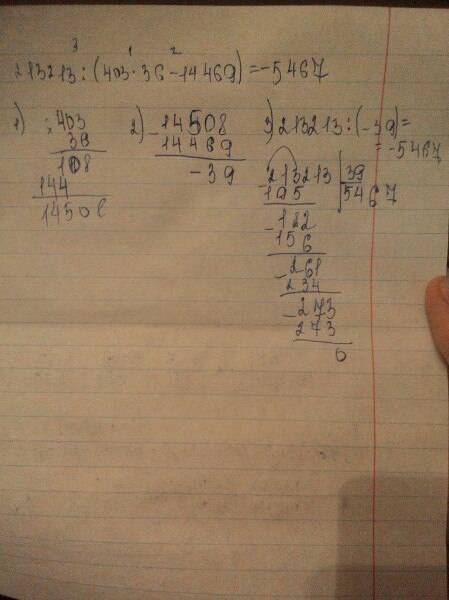 3 1 2
213213:(403·36-14469)=-5467
1) ×403
36
108
144
14508
2) -14508
14469
-39
3) 213213:(-39)=
=-5467
-213213 | 39
195 | 5467
-182
156
-261
234
-273
273
0